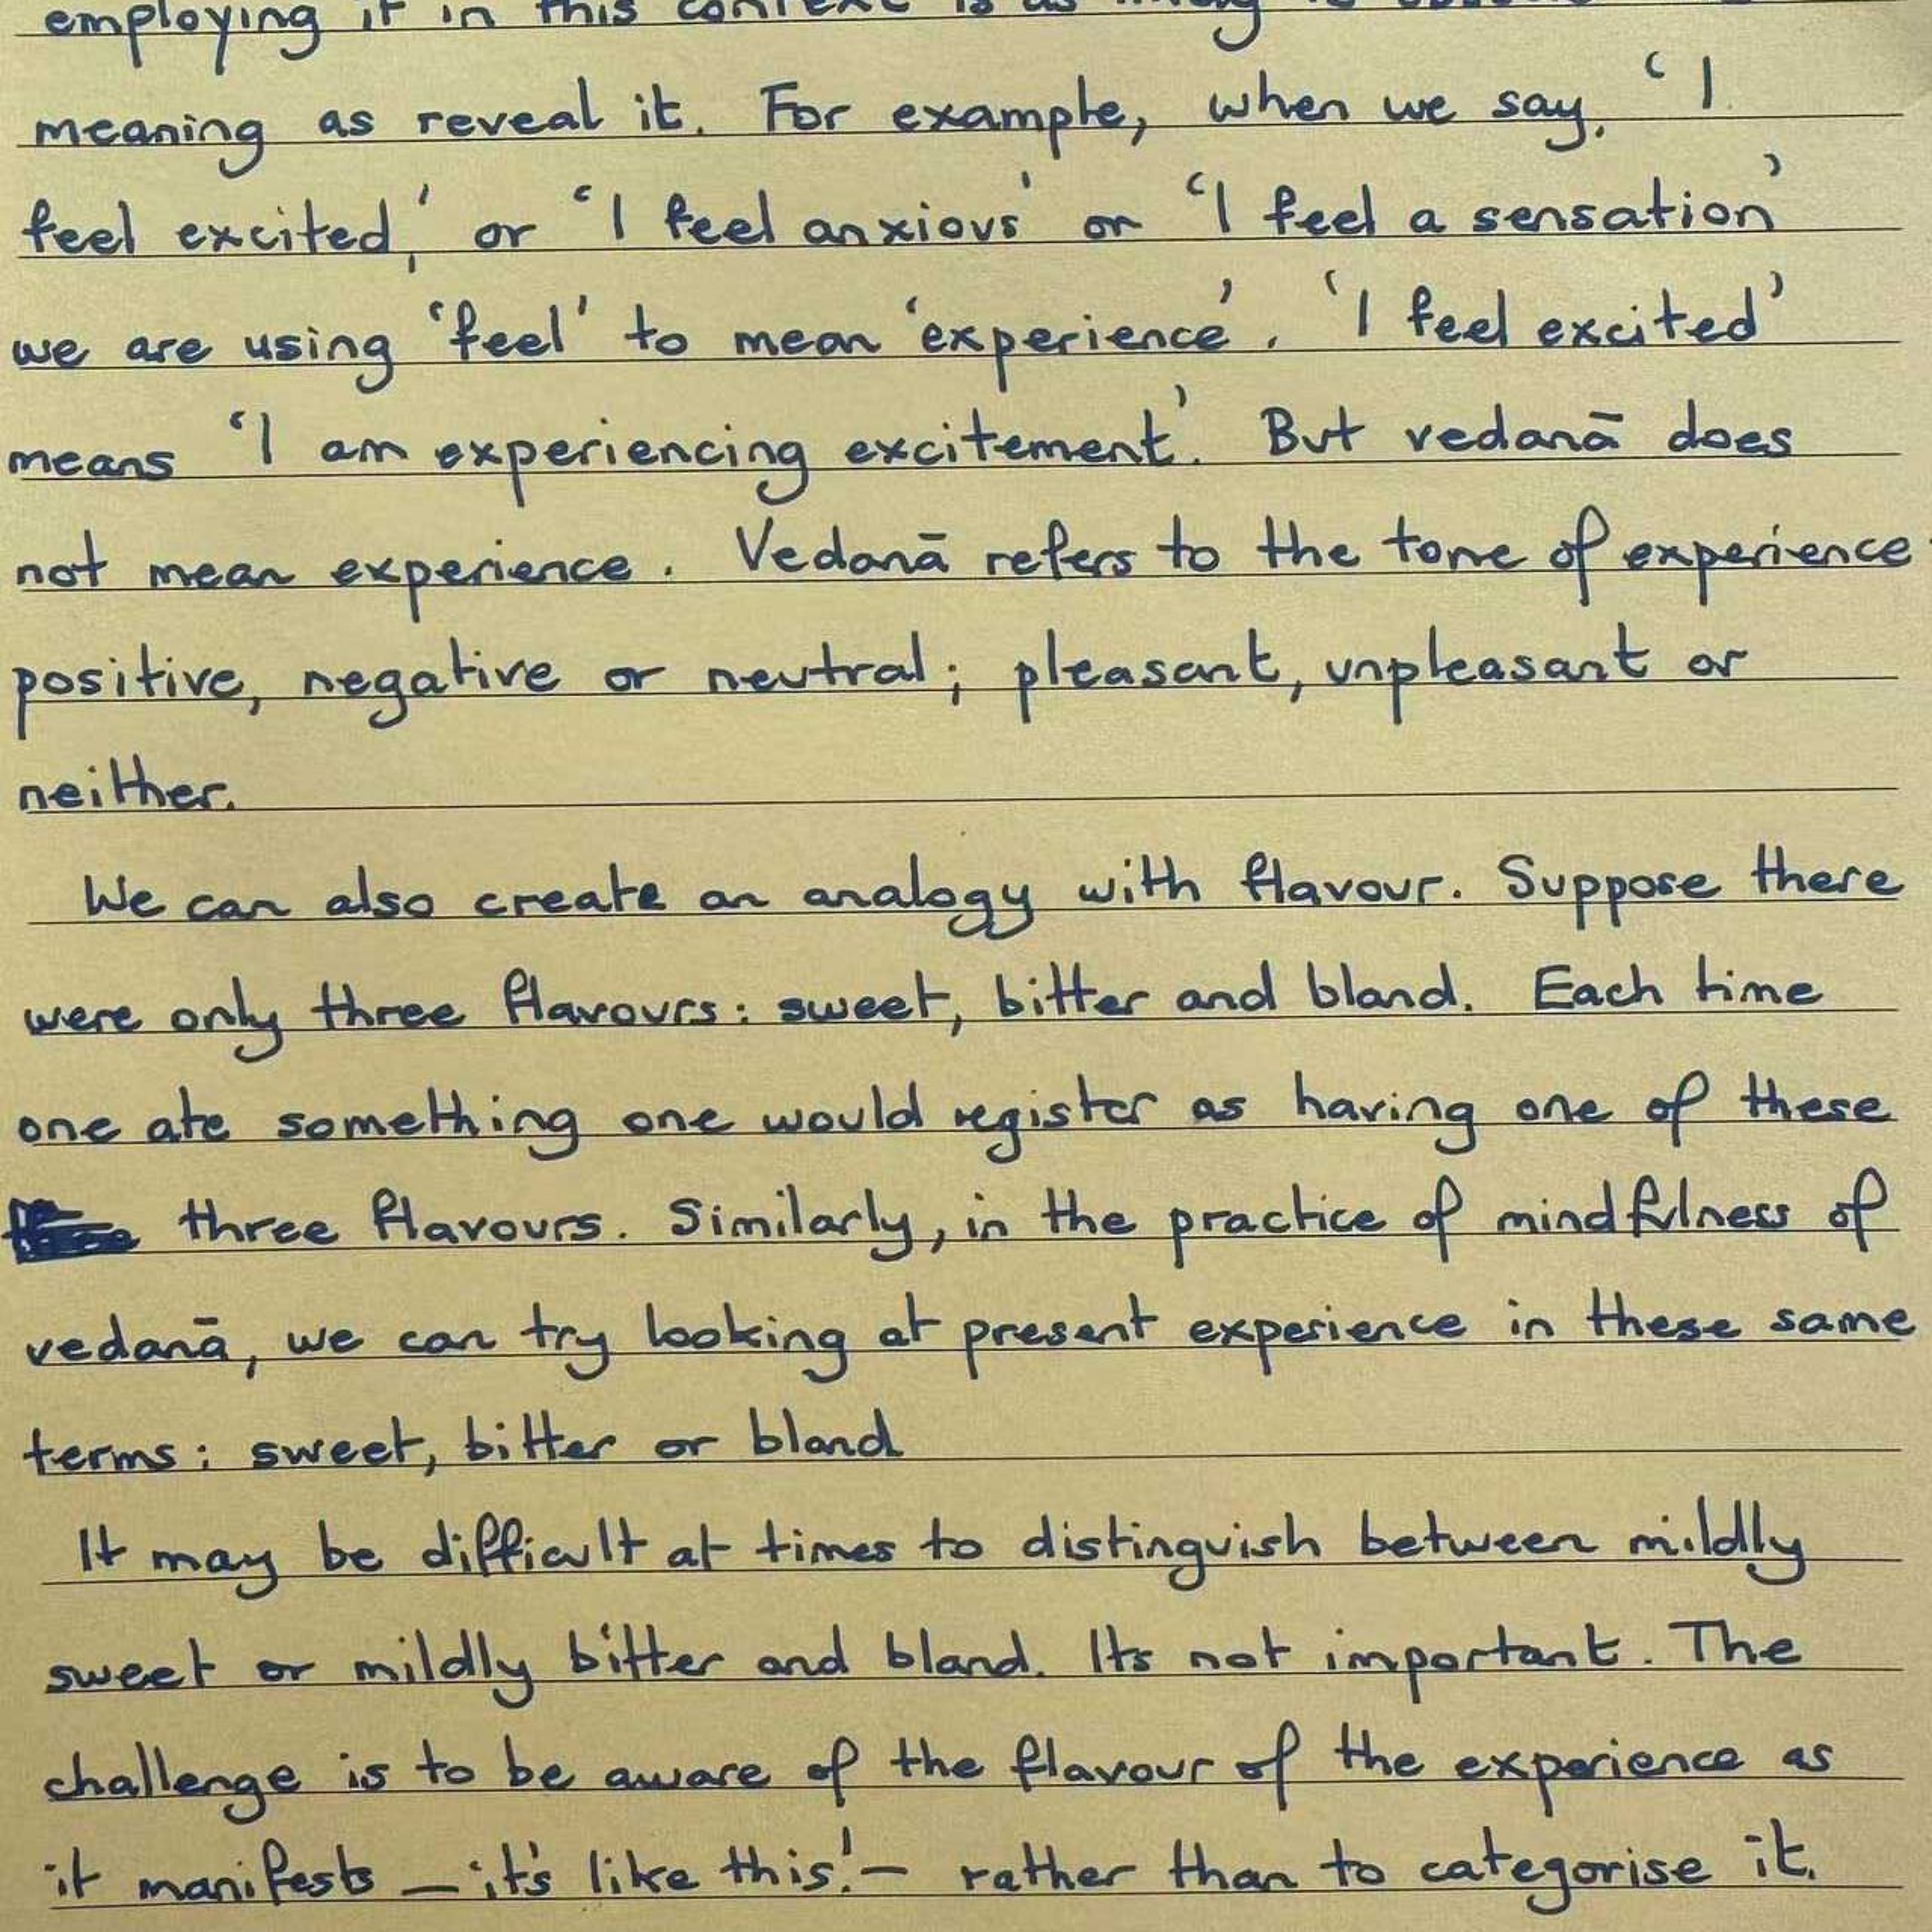 employing it in this context is as likely to
meaning as reveal it. For example, when we say, ‘I
feel excited,’ or ‘I feel anxious’ or ‘I feel a sensation’
we are using ‘feel’ to mean ‘experience’. ‘I feel excited’
means ‘I am experiencing excitement’. But vedanā does
not mean experience. Vedanā refers to the tone of experience
positive, negative or neutral; pleasant, unpleasant or
neither.
We can also create an analogy with flavour. Suppose there
were only three flavours: sweet, bitter and bland. Each time
one ate something one would register as having one of these
three flavours. Similarly, in the practice of mindfulness of
vedanā, we can try looking at present experience in these same
terms: sweet, bitter or bland
It may be difficult at times to distinguish between mildly
sweet or mildly bitter and bland. Its not important. The
challenge is to be aware of the flavour of the experience as
it manifests – ‘it's like this!’ – rather than to categorise it.